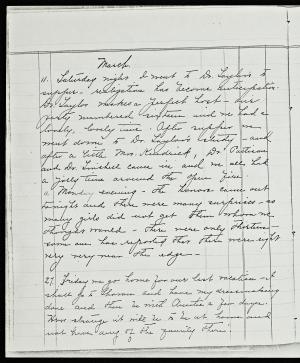 March.
11. Saturday night I went to Dr. Taylor's to
supper - realization has become anticipation.
Dr. Taylor makes a perfect host - our
party numbered sixteen and we had a
lovely, lovely time. After supper we
went down to Dr. Taylor's study and
after a little Mrs. Dr.
and Dr. came in and we all had
a jolly time around the open fire.
Monday evening - the honors came out
tonight and there were many surprises - so
many girls did not get them whom we
thought would - there were only thirteen
some one has reported that there were eight
very very near the edge -
27. Friday we go home for our last vacation - I
shall go to and have my dressmaking
done and then be with Auntie a few days.
How strange it will be to be at home and
not have any of the family there!